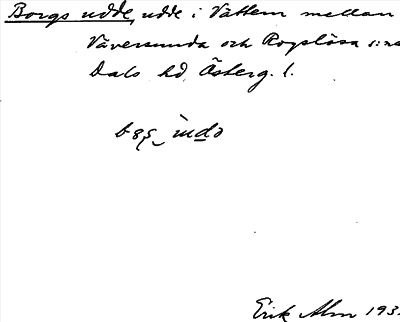 Borgs udde, udde i Vättern mellan
Väversunda och Rogslösa s:nr
Dals hd, Österg. l.
Erik Alm 193